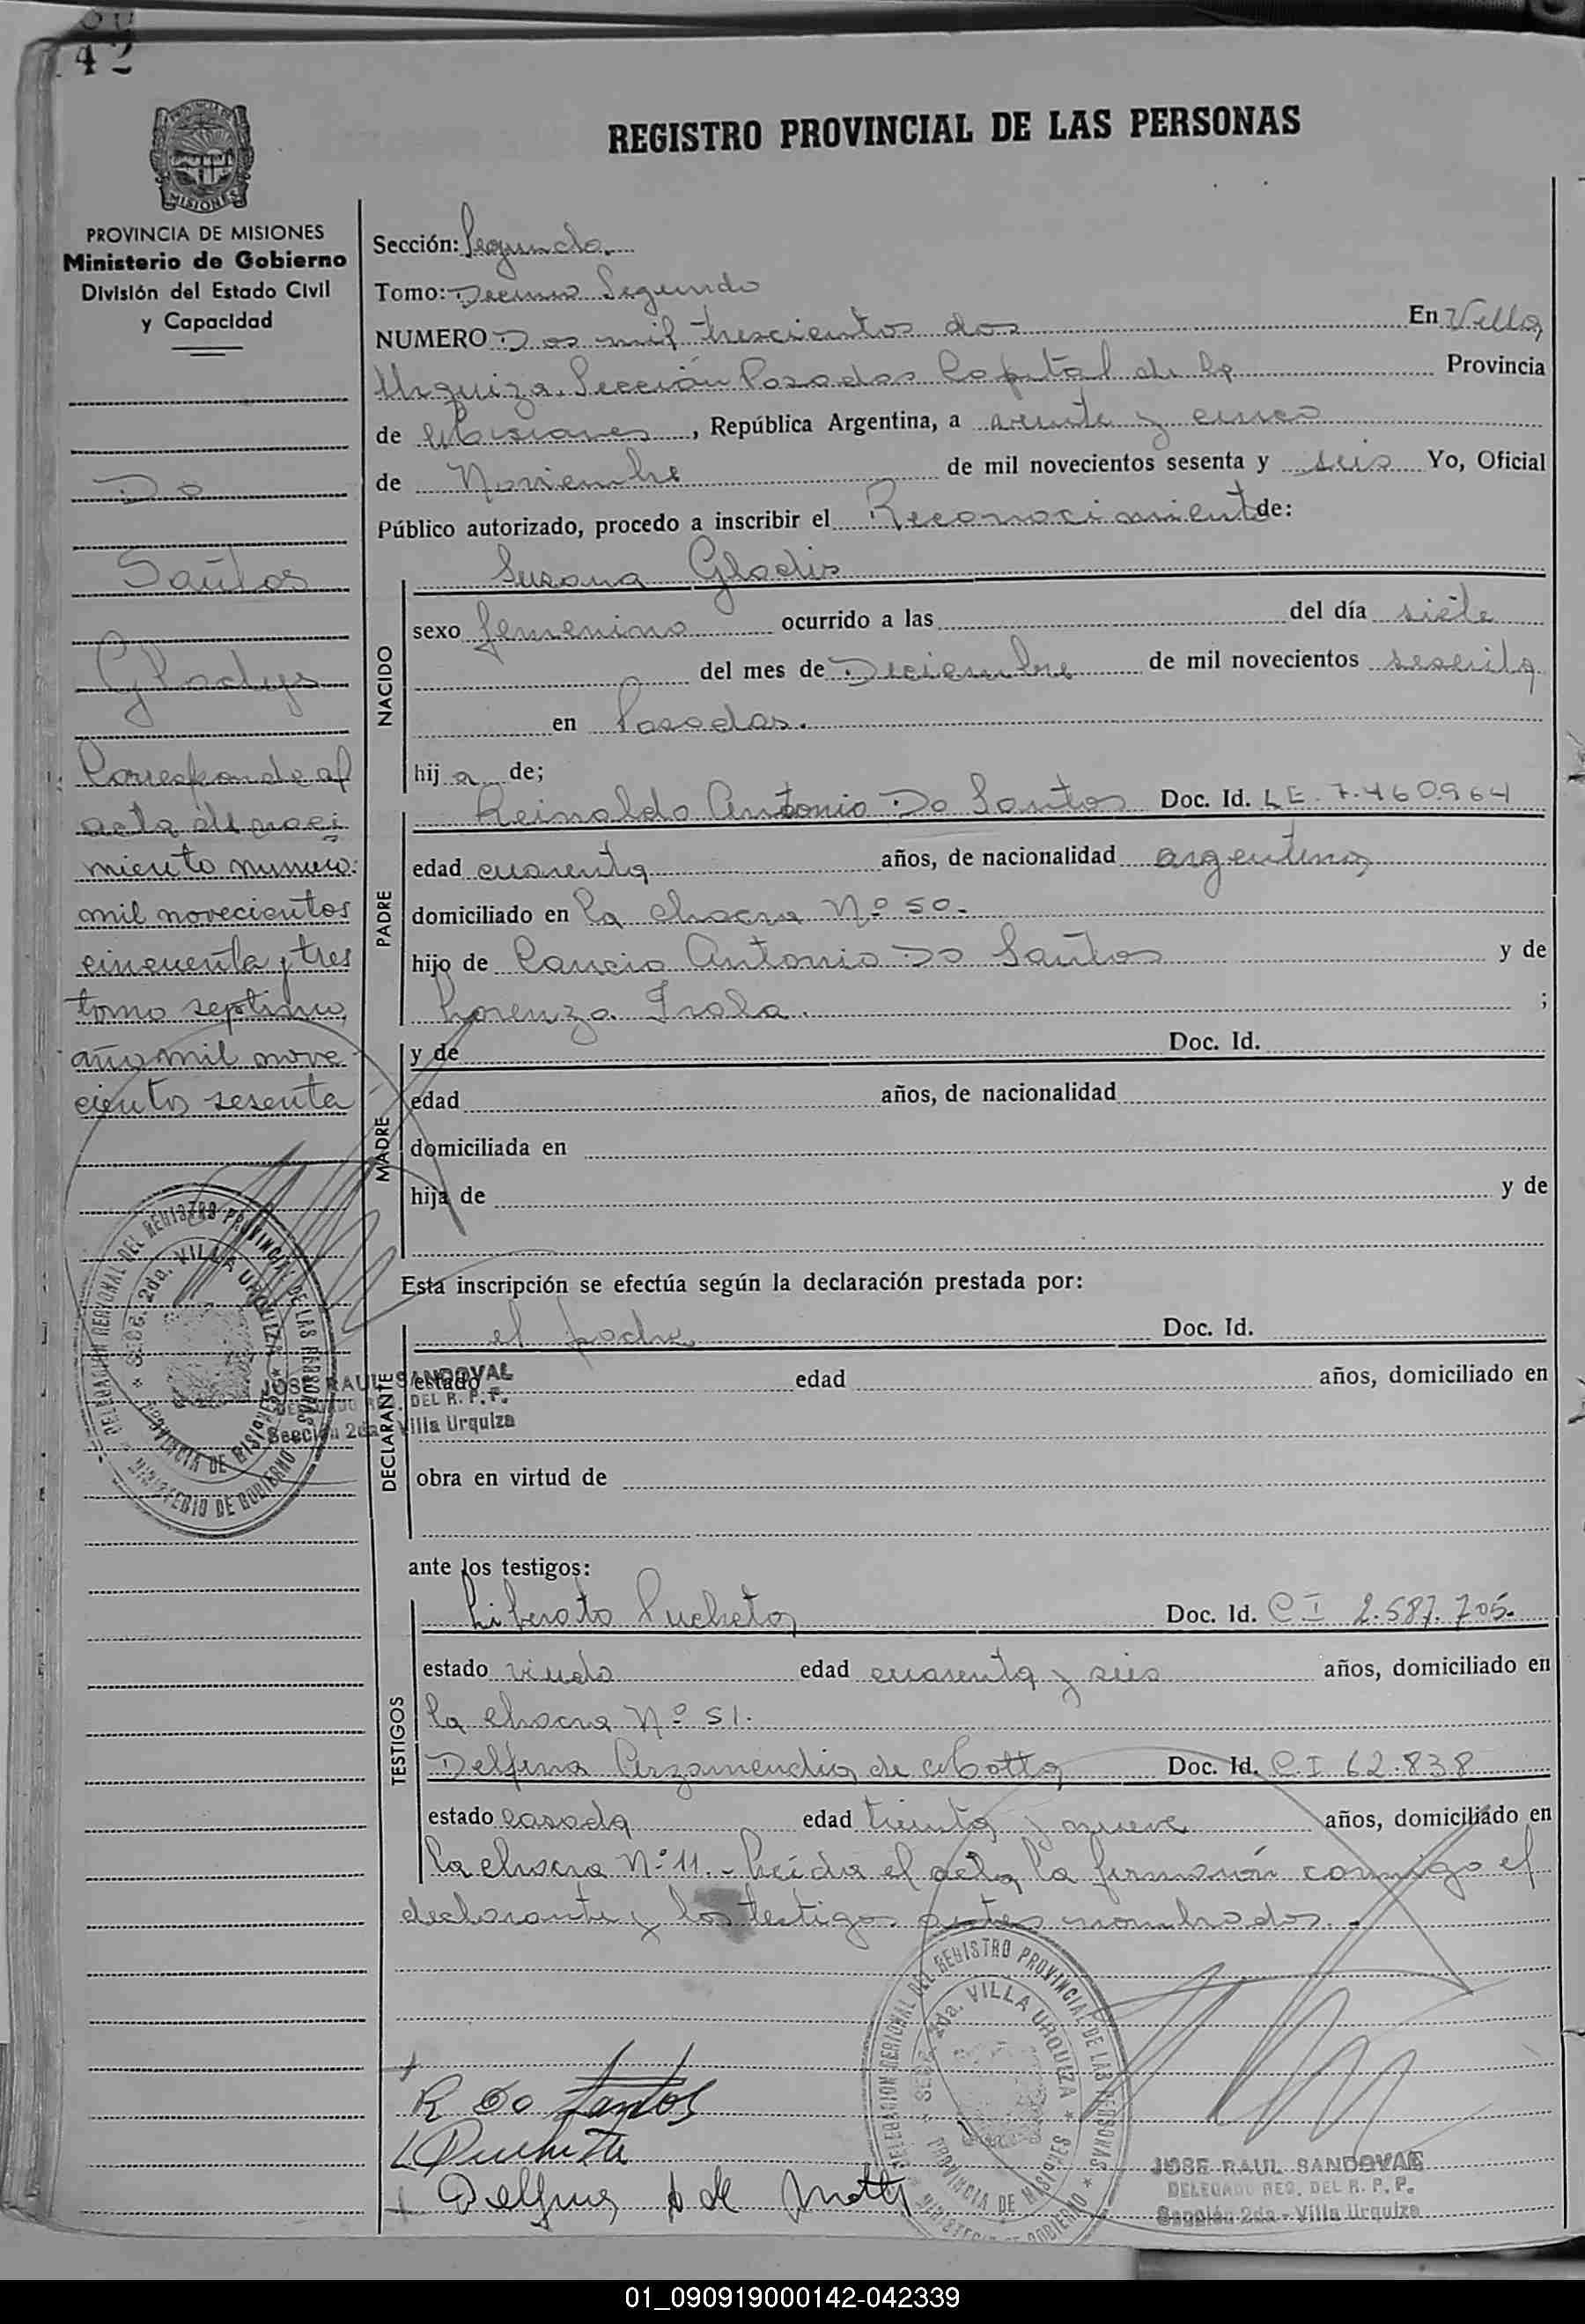 42
REGISTRO PROVINCIAL DE LAS PERSONAS
MISIONES
PROVINCIA DE MISIONES
Ministerio de Gobierno
División del Estado Civil
y Capacidad
Do
Santos
Gladys
Corresponde al
acta de naci
miento numero:
mil novecientos
cincuenta y tres
tomo septimo,
año mil nove
cientos sesenta
Sección: Segunda
Tomo: Decimo Segundo
NUMERO Dos mil trescientos dos En Villa
Urquiza Sección Posadas Capital de la Provincia
de Misiones, República Argentina, a veinte y cinco
de Noviembre de mil novecientos sesenta y seis Yo, Oficial
Público autorizado, procedo a inscribir el Reconocimiento de:
NACIDO
Susana Gladis
sexo femenino ocurrido a las del día siete
del mes de Diciembre de mil novecientos sesenta
en Posadas.
hija de;
PADRE
Reinaldo Antonio Do Santos Doc. Id. LE. 7.460.964
edad cuarenta años, de nacionalidad argentina
domiciliado en la chacra Nº 50.-
hijo de Cancio Antonio Do Santos y de
Lorenza Irala. ;
MADRE
y de Doc. Id.
edad años, de nacionalidad
domiciliada en
hija de y de
Esta inscripción se efectúa según la declaración prestada por:
DECLARANTE
el padre Doc. Id.
estado edad años, domiciliado en
obra en virtud de
DELEGACION REGIONAL DEL REGISTRO PROVINCIAL DE LAS PERSONAS
SECC. 2da. VILLA URQUIZA
PROVINCIA DE MISIONES
MINISTERIO DE GOBIERNO
JOSE RAUL SANDOVAL
DELEGADO REG. DEL R. P. P.
Sección 2da - Villa Urquiza
ante los testigos:
TESTIGOS
Liberato Pucheta Doc. Id. C I 2.587.705.
estado viudo edad cuarenta y seis años, domiciliado en
la chacra Nº 51.
Delfina Arzamendia de Motta Doc. Id. C. I 62.838
estado casada edad treinta y nueve años, domiciliado en
la chacra Nº 11.- Leída el acta la firmarón conmigo el
declarante y los testigos antes nombrados.-
R Do Santos
L Pucheta
Delfina A de Motta
DELEGACION REGIONAL DEL REGISTRO PROVINCIAL DE LAS PERSONAS
SECC. 2da. VILLA URQUIZA
PROVINCIA DE MISIONES
MINISTERIO DE GOBIERNO
JOSE RAUL SANDOVAL
DELEGADO REG. DEL R. P. P.
Sección 2da - Villa Urquiza
01_090919000142-042339